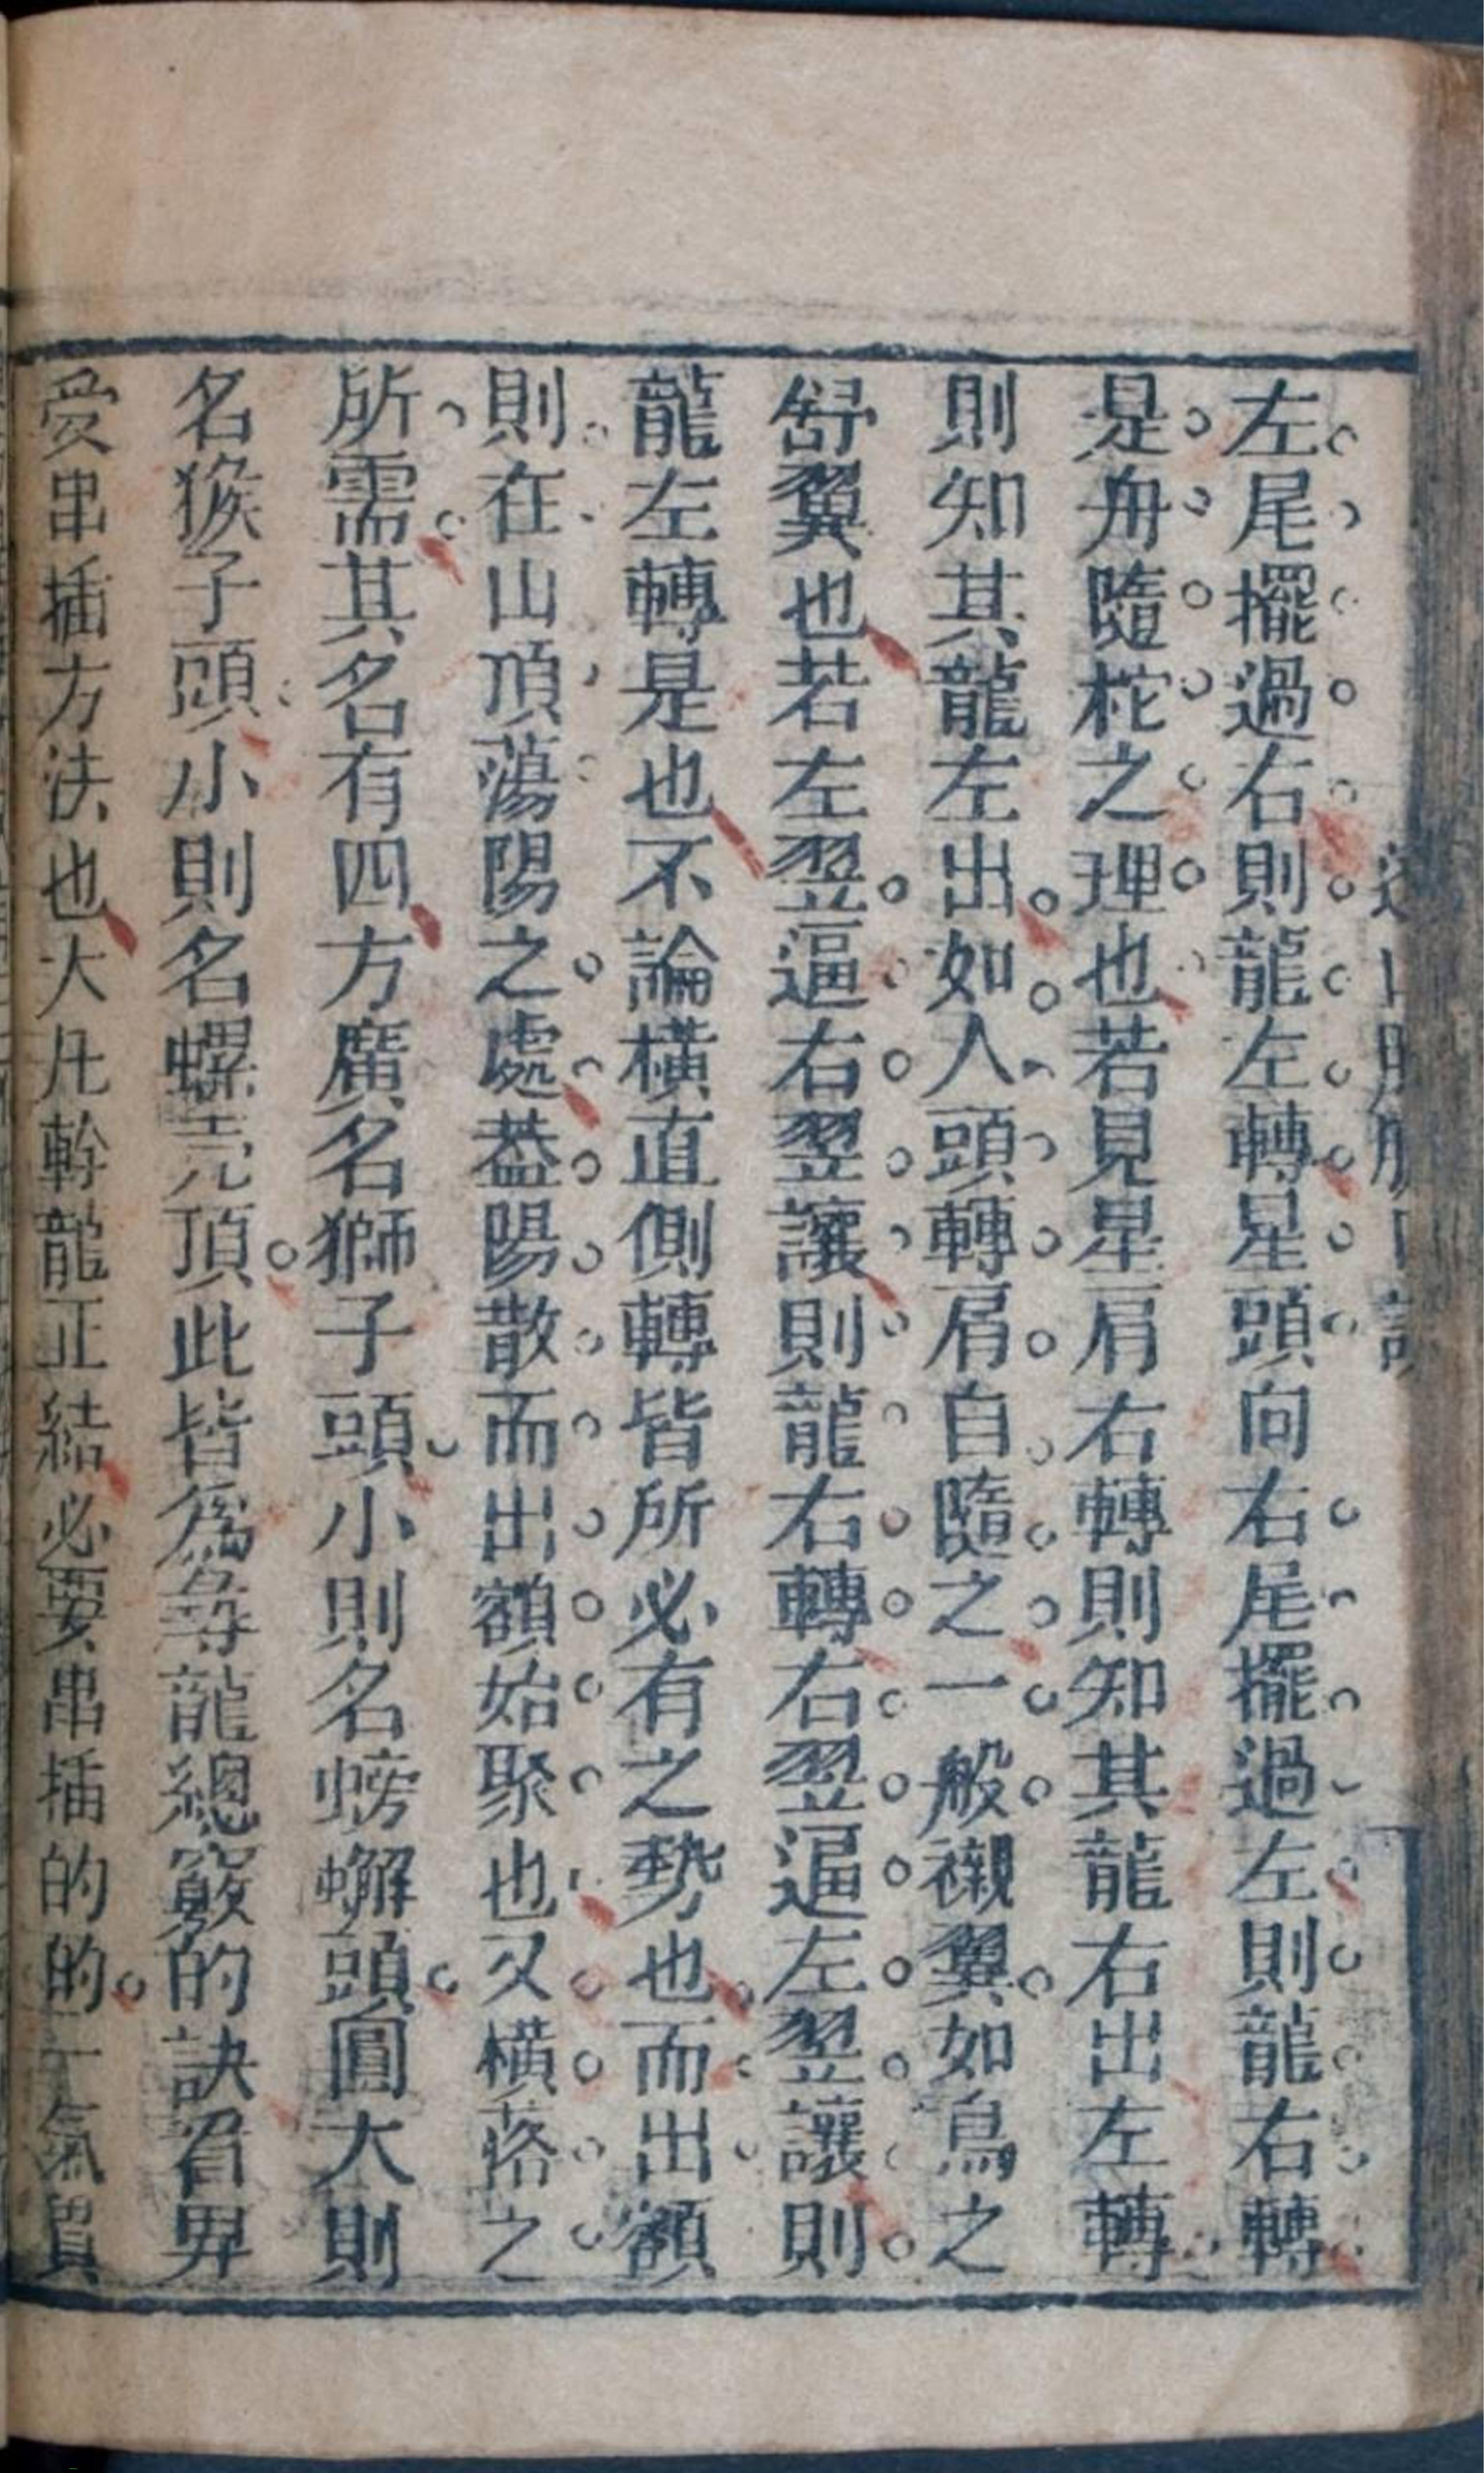 左尾擺過右則龍左轉星頭向右尾擺過左則龍右轉
是舟隨柁之理也若見星肩右轉則知其龍右出左轉
則知其龍左出如人頭轉肩自隨之一般襯翼如鳥之
舒翼也若左翌逼右翌讓則龍右轉右翌逼左翌讓則
龍左轉是也不論橫直側轉皆所必有之勢也而出額
則在山頂蕩陽之處葢陽散而出額始聚也又橫落之
所需其名有四方廣名獅子頭小則名螃蠏頭圓大則
名猴子頭小則名螺売頂此皆爲尋龍總竅的訣看界
受串插方法也大凡幹龍正結必要串插的的氣貫